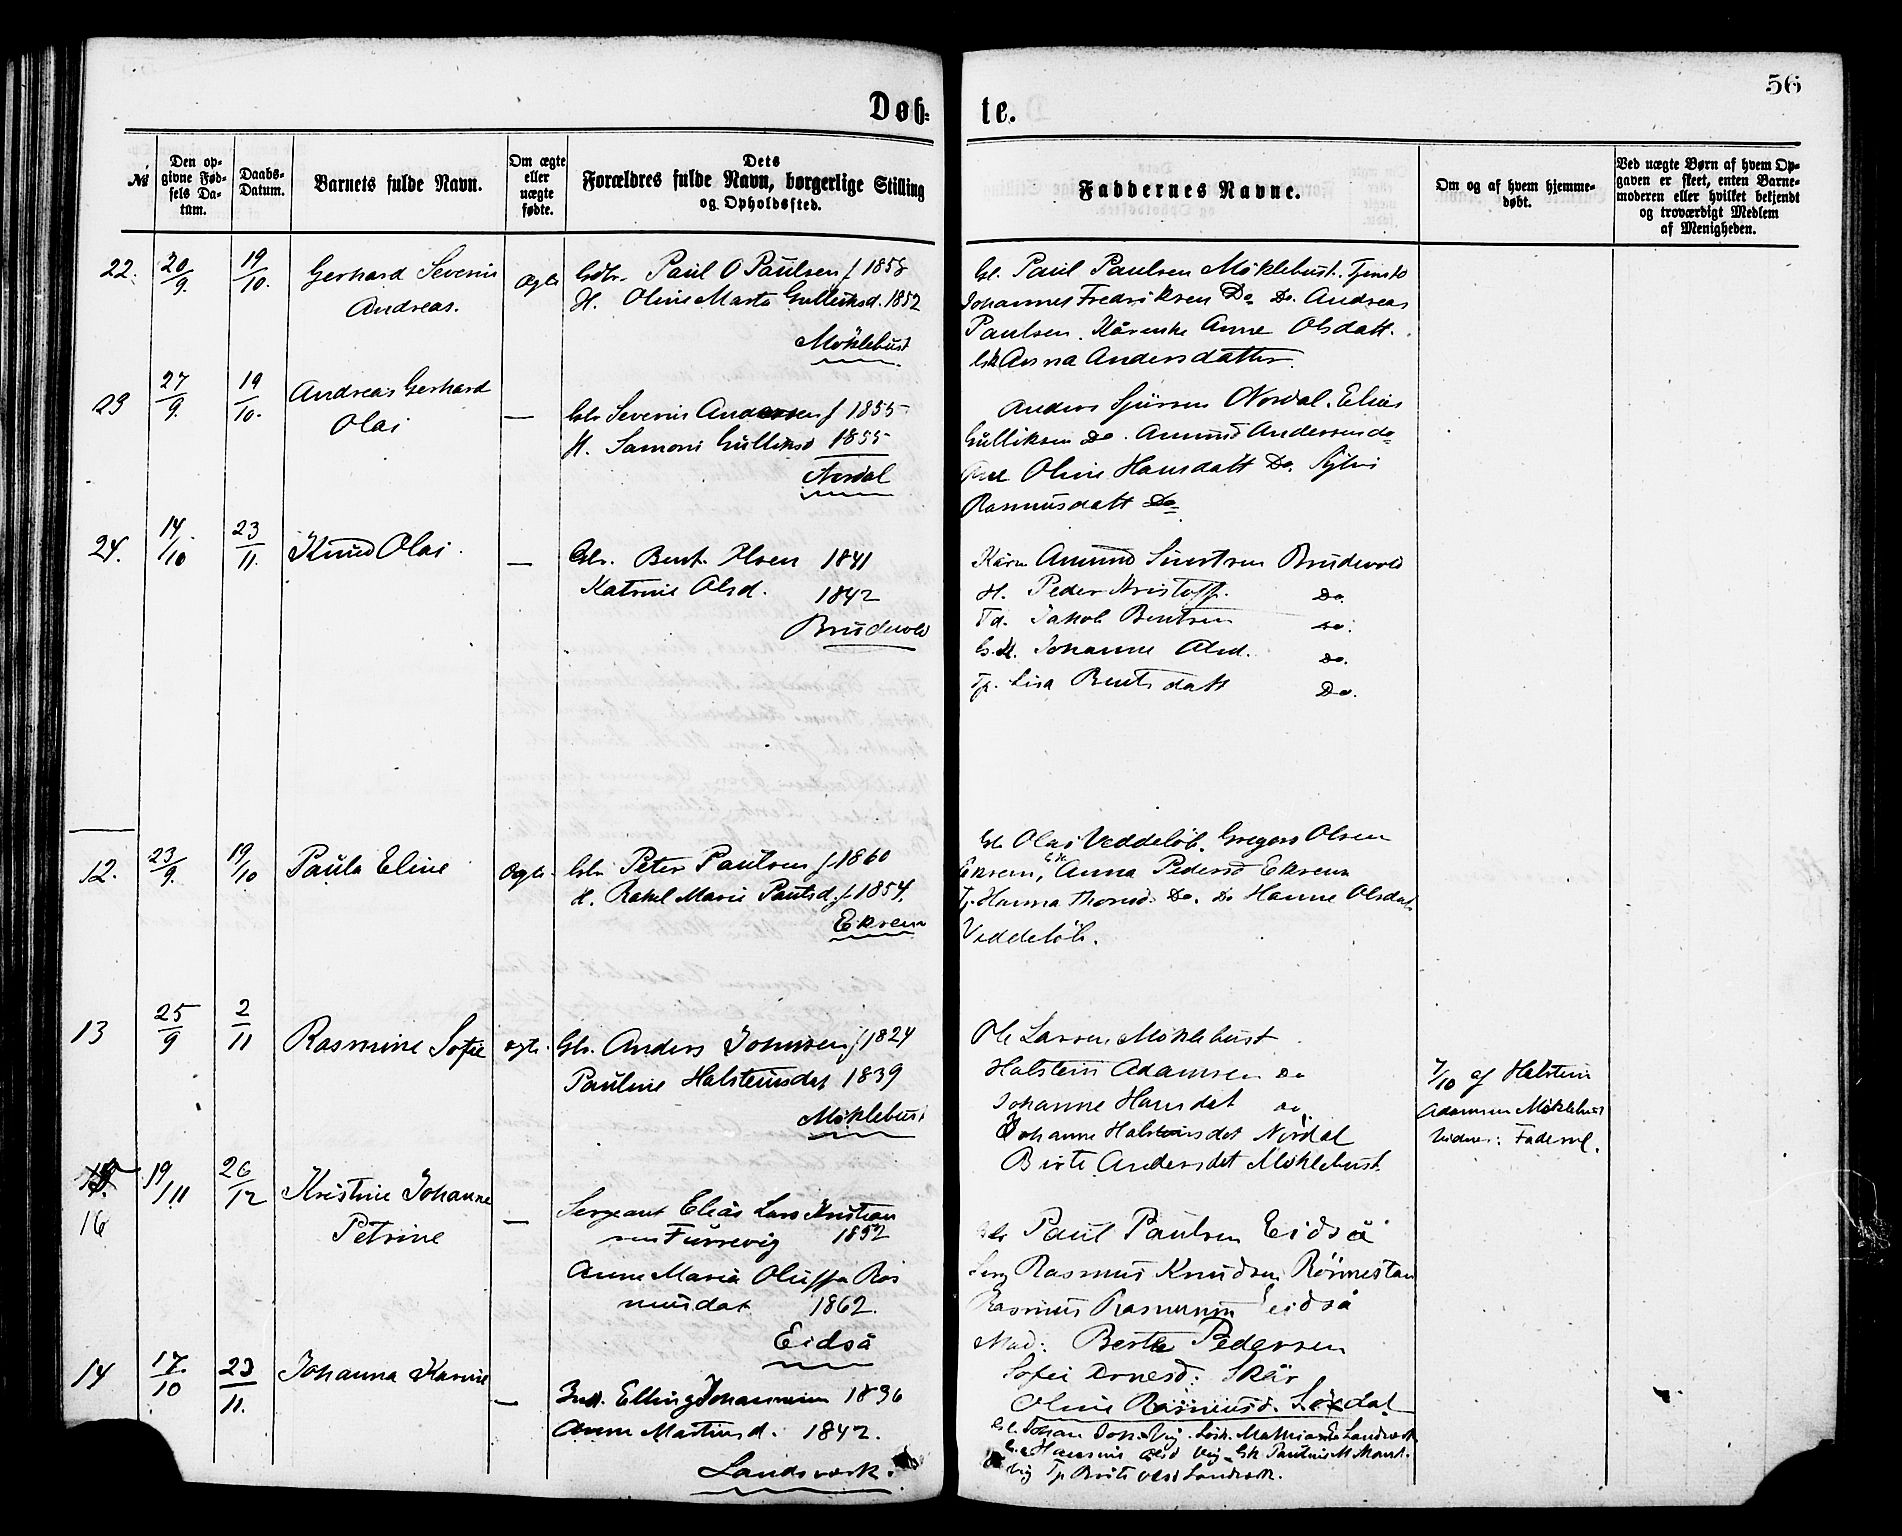 56
Døb-
te.
№
Den op-
givne Fød-
sels Da-
tum.
Daabs-
Datum.
Barnets fulde Navn.
Om ægte
eller
uægte
fødte.
Dets
Forældres fulde Navn, borgerlige Stilling
og Opholdssted.
Faddernes Navne.
Om og af hvem hjemme-
døbt.
Ved uægte Børn af hvem Op-
gaven er skeet, enten Barne-
moderen eller hvilket bekjendt
og troværdigt Medlem
af Menigheden.
22. 20/9. 19/10. Gerhard Severin
Andreas.
Paul O Paulsen f 1858
H. Oline Marta Gulliksd. 1852
Möklebust
Paul Paulsen Möklebust.
Johannes Fredriksen Do Do. Andreas
Paulsen. Anne Olsdatt.
Anna Andersdatter.
23 27/9. 19/10. Andreas Gerhard
Olai
—
Gbr Severin Andersen f 1855
H. Samoni Gulliksd 1855
Nordal
Anders Sjursen Nordal. Elias
Gulliksen Do. Amund Andersen do
Oline Hansdatt Do. Sylvi
Rasmusdatt Do
24. 14/10 23/11. Knud Olai.
—
Gbr. Bent Olsen 1841
Katrine Olsd. 1842
Brudevold
Amund Sivertsen Brudevold
H. Peder Kristoff. Do.
Jakob Bentsen do.
Johanne Olsd. Do.
Tp. Lisa Bentsdatt Do.
12. 23/9. 19/10 Paula Eline
Gbr. Peter Paulsen f. 1860
H. Rakel Marie Paulsd. f. 1854.
Ekrem
Olai Veddelöb. Gregers Olsen
Ekrem, Anna Pedersd Ekrem
Hanna Thorsd. Do. Do Hanne Olsdat
Veddelöb.
13 25/9 2/11 Rasmine Sofie ægte.
Gbr. Anders Johnsen f 1824
Pauline Halsteinsdat 1839
Möklebust
Ole Larsen Möklebust
Halstein Adamsen Do
Johanne Hansdat do.
Johanne Halsteinsdat Nordal
Berte Andersdat Möklebust
7/10 af Halstein
Adamsen Möklebust
Vidner: Faderne.
16 19/11 26/12 Kristine Johanne
Petrine
—
Sergeant Elias Lars Kristian
sen Furrevig 1852
Anne Maria Oluffa Ras
musdat 1862.
Eidså
Paul Paulsen Eidså
Rasmus Knudsen Rönnestan
Rasmus Rasmussen Eidså
Mad: Berthe Pedersen
Sofie Arnesd: Skår
Oline Rasmusd.
14 17/10 23/11. Johanna Karine
—
Ind. Elling Johannesen 1836
Anne Martinsd. 1842.
Landsverk.